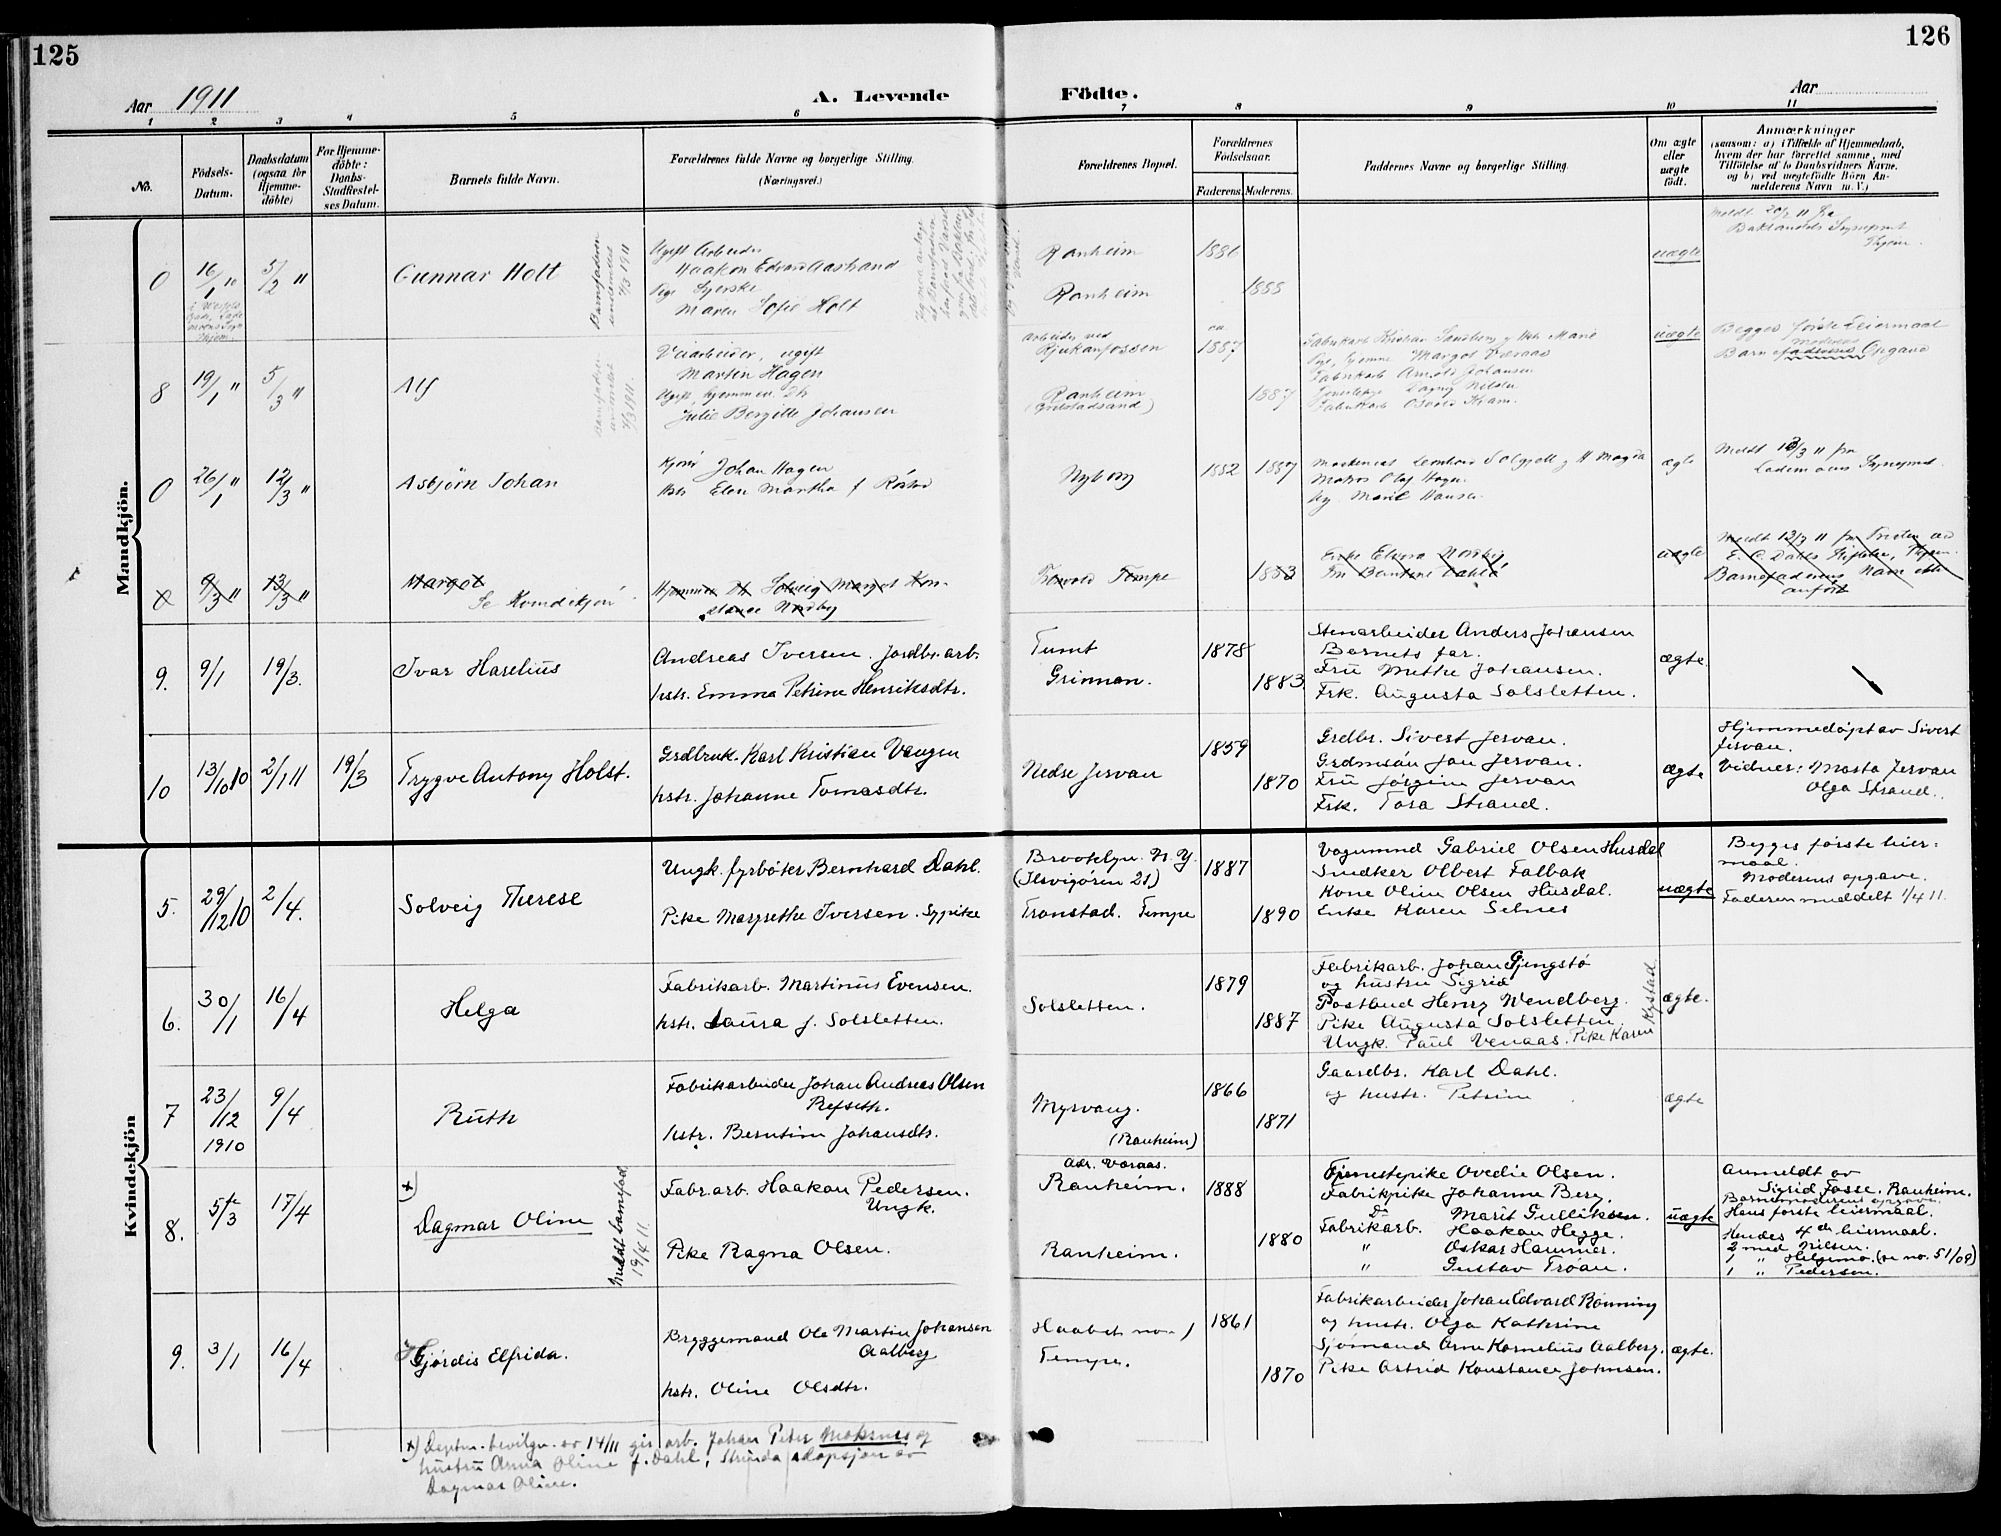 125
126
Aar 1911
A. Levende Födte.
Aar
1 2 3 4 5 6 7 8 9 10 11
No.
Födsels-Datum.
Daabsdatum (ogsaa for Hjemme-döbte)
For Hjemme-döbte: Daabs-Stadfestel-ses Datum.
Barnets fulde Navn.
Forældrenes fulde Navne og borgerlige Stilling. (Næringsvei.)
Forældrenes Bopæl.
Forældrenes Födselsaar.
Faderens. Moderens.
Faddernes Navne og borgerlige Stilling.
Om ægte eller uægte födt.
Anmærkninger
(saasom: a) i Tilfælde af Hjemmedaab,
hvem der har forrettet samme, med
Tilföielse af to Daabsvidners Navne.
og b) ved uægtefödte Börn An-
melderens Navn m. V.)
Mandkjön.
0 16/1 5/2 " Gunnar Holt
Barnefaderen underrettet 2/3 1911
Ugift Arbeider
Haakon Edvard Aastrand
Pige
Maren Sofie Holt
Ranheim 1886
Ranheim 1888
uægte
Meldt 20/2 11 fra
Baklandets Sogneprest
Thjem.
8 19/1 " 5/3 " Alf
Veiarbeider, ugift
Martin Hagen
Ugift, hjemmev. Dtr
Julie Bergitte Johansen
Arbeider ved
Rjukanfossen ca 1887
Ranheim
(Grilstadsand) 1887
Margot Væraas
Fabrikarb Arnold Johansen
Dagny Nilsen
uægte
Begges første Leiermaal
Barnefaderens Moderens Opgave
0 26/1 " 12/3 " Asbjørn Johan
Kjører Johan Hagen
Hstr Elen Martha f Röstad
Nyborg 1882 1887
Matros Olaf Hagen
ug. Marie Hansen
ægte
Meldt 18/3 11 fra
Lademoens Sogneprest.
9/3 " 13/3 " Margot
Se Kvindekjøn
Hjemmev Dtr Solveig Margot Kon-
stance Nordby
Tempe 1883
Enke Elvira Nordby
Fru Berntine Dahlø
uægte
Meldt 13/3 11 fra Presten ved
E. C. Dahls Stiftelse, Thjem.
Barnefaderens Navn ikke
anført
9. 9/1 19/3. Ivar Haselius
Andreas Iversen. Jordbr.arb.
hstr. Emma Petrine Henriksdtr.
Tunet
Grinnan.
1878
1883
Stenarbeider Anders Johansen
Barnets far.
Fru Methe Johansen.
Frk. Augusta Solsletten.
ægte.
10 13/10 10 2/1 11 19/3 Trygve Antony Holst.
Grdbruk. Karl Kristian Vangen
hstr. Johanne Tomasdtr.
Nedre Jervan
1859
1870
Grdbr. Sivert Jervan.
Grdmsån Jon Jervan.
Fru Jørgine Jervan
Frk. Tora Strand.
ægte
Hjemmedøpt av Sivert
Jervan.
Vidner: Marta Jervan
Olga Strand.
Kvindekjön
5. 29/12 10 2/4. Solveig Therese
Ungk. fyrbøter Bernhard Dahl.
Pike Margrethe Iversen. Sypike
Brooklyn. N. Y.
(Ilsvigøren 21)
Tronstad. Tempe
1887
1890
Vognmnd Gabriel Olsen Husdal
Snedker Olbert Falbak
Kone Oline Olsen Husdal.
Enke Karen Selnes
uægte
Begges første leier-
maal.
Moderens opgave.
Faderen meddelt 1/4 11.
6. 30/1 16/4 Helga
Fabrikarb. Martinus Evensen.
hstr. Laura f. Solsletten.
Solsletten.
1879
1887
Fabrikarb. Johan Gjengstø
og hustru Sigrid
Postbud Henry Wendberg.
Pike Augusta Solsletten.
Ungk. Paul Venaas. Pike Karen
Rystad
ægte.
7 23/12 1910 9/4 Ruth
Fabrikarbeider Johan Andreas Olsen
Refseth.
hstr. Berntine Johansdtr.
Myrvang.
(Ranheim)
1866
1871
Gaardbr. Karl Dahl.
og hustr. Petrine
ægte
8. 5te/3 17/4 x) Dagmar Oline
Meldt barnefad. 19/4 11.
Fabr.arb. Haakon Pedersen.
Ungk.
Pike Ragna Olsen.
adr. Væraas.
Ranheim.
Ranheim.
1888
1880
Tjenestepike Ovedie Olsen.
Fabrikpike Johanne Berg.
Do Marit Gulliksen.
Fabrikarb. Haakon Hegge.
" Oskar Hammer.
" Gustav Troan.
uægte
Anmeldt av
Sigrid Fosse. Ranheim.
Barnemoderens opgave.
Hans første leiermaal.
Hendes 4de leiermaal.
2 med Nilsen.
1 " Helgemo. (se no. 51/08)
1 " Pedersen.
9. 3/1 16/4 Hjørdis Elfrida.
Bryggemand Ole Martin Johansen
Aalberg
hstr. Oline Olsdtr.
Haabet no. 1
Tempe.
1861
1870
Fabrikarbeider Johan Edvard Rønning
og hustr. Olga Katherine
Sjømand Arne Kornelius Aalberg.
Pike Astrid Konstance Johnsen.
ægte.
x) Deptm. bevilgn. av 14/11 gir arb. Johan Peter Moksnes og
hustru Anna Oline f. Dahl, Strinda adopsjon av
Dagmar Oline.